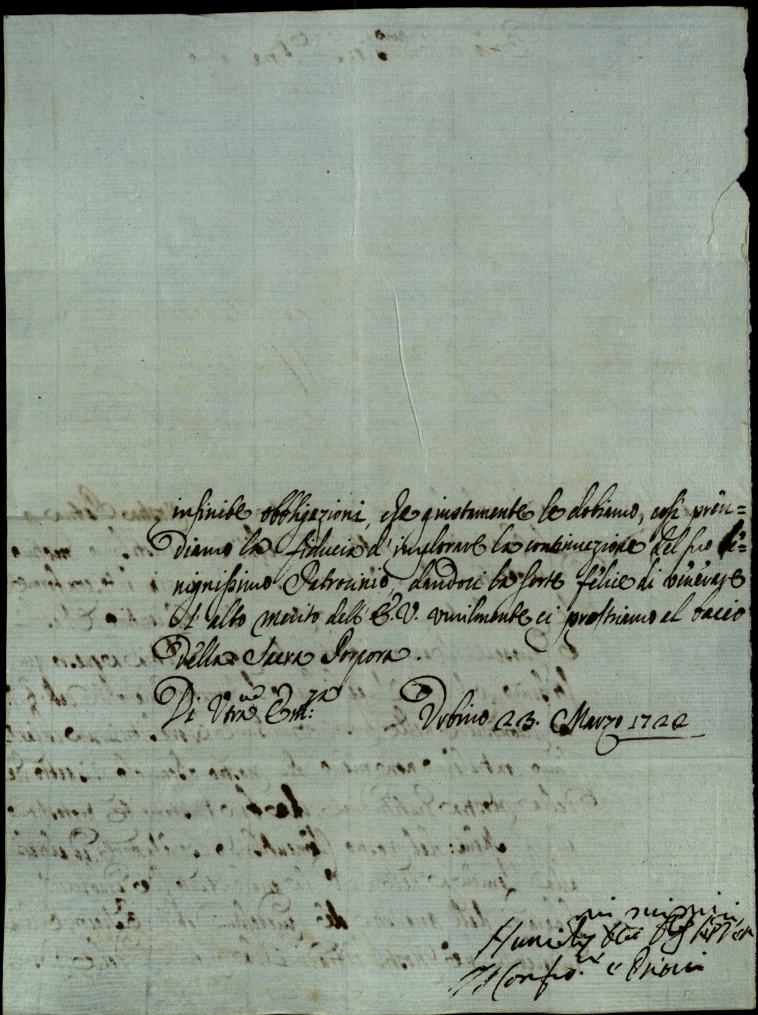 infinite obbligazioni, che giustamente le dobiamo, così pren=
diamo la fiducia d'implorare la continuazione del suo be=
nignissimo Patrocinio, dandoci la sorte felice di venerare
l'alto merito dell' E. V. umilmente ci prostriamo al bacio
della Sacra Porpora.
Di Vrã Em.za Urbino 23. Marzo 1722
Il Confo.re e Priori